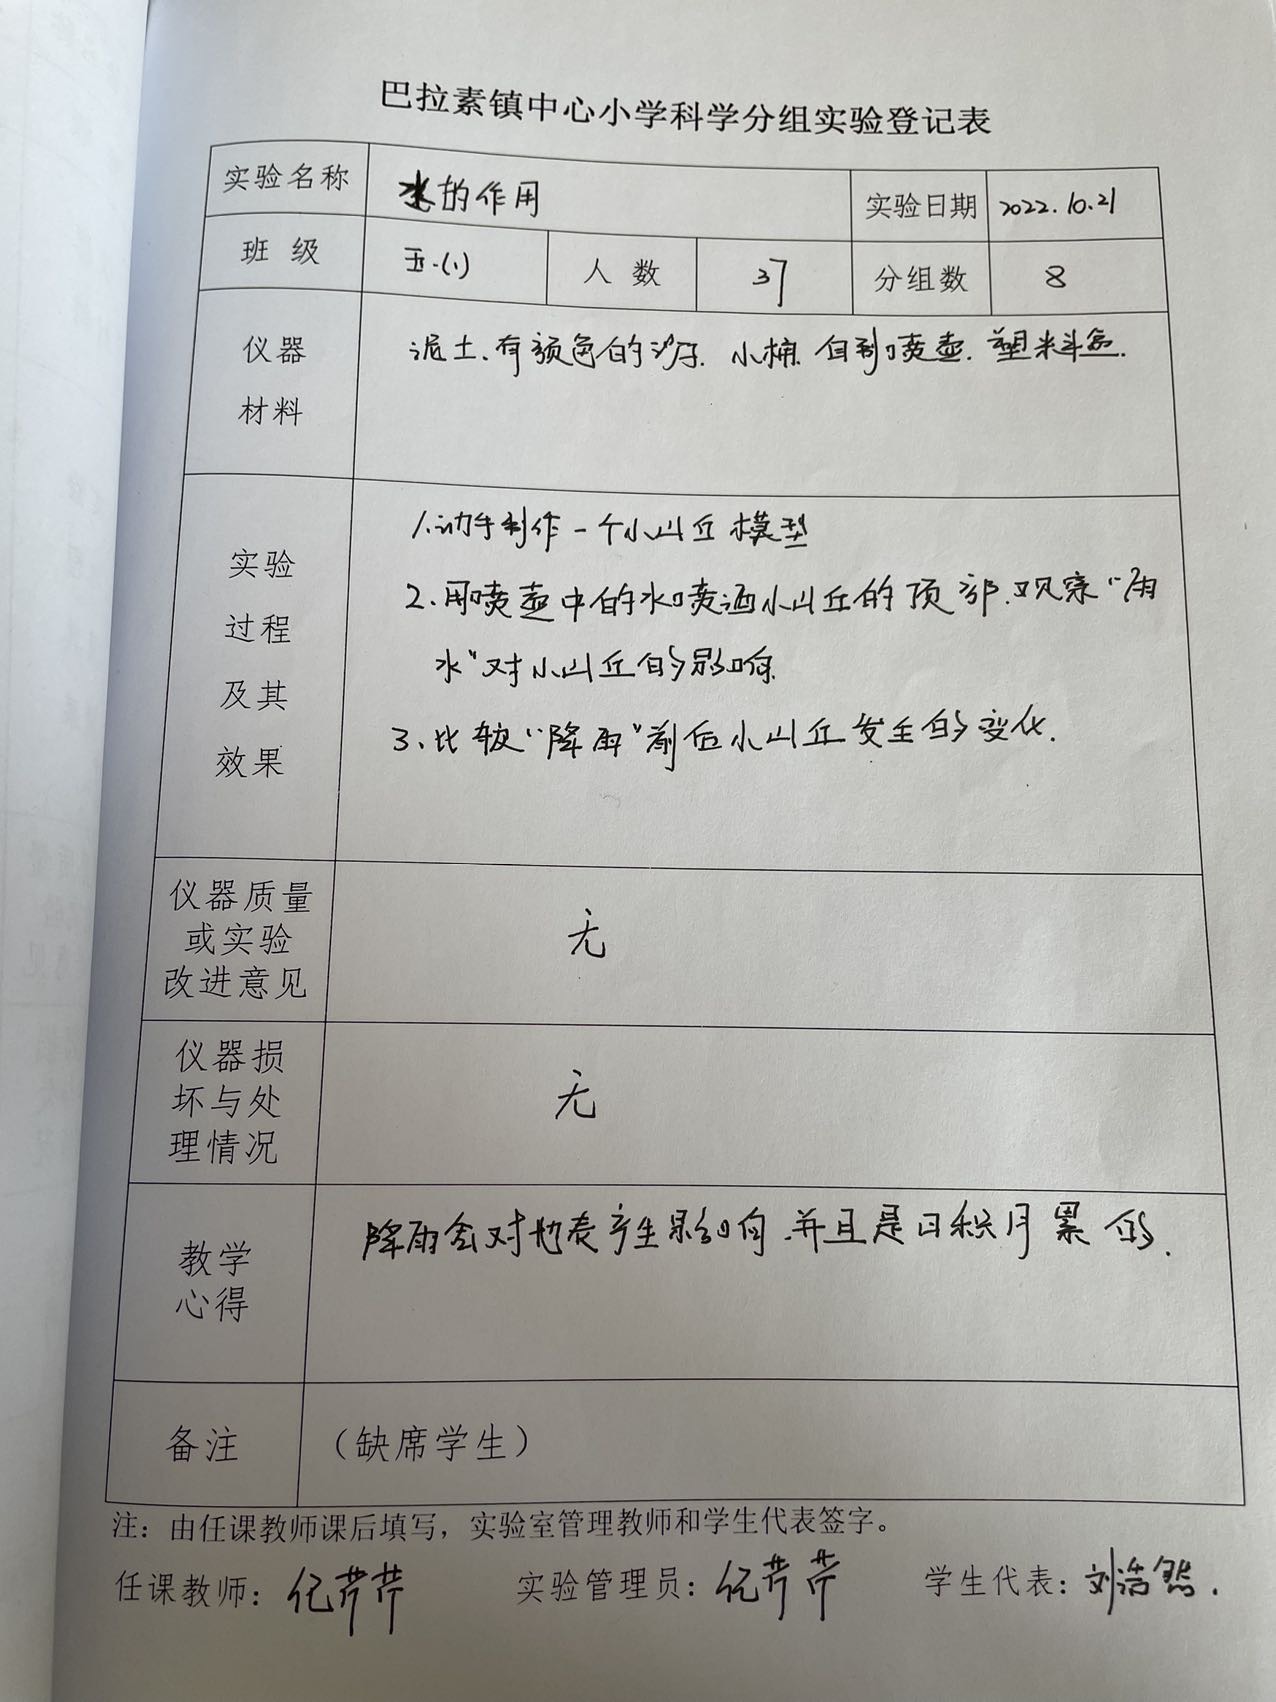 巴拉素镇中心小学科学分组实验登记表
实验名称 水的作用 实验日期 2022.10.21
班级 五.(1) 人数 37 分组数 8
仪器
材料
泥土、有颜色的沙子. 小桶. 自制喷壶. 塑料盒.
实验
过程
及其
效果
1.动手制作一个小山丘模型
2.用喷壶中的水喷洒小山丘的顶部.观察“雨
水”对小山丘的影响.
3、比较“降雨”前后小山丘发生的变化.
仪器质量
或实验
改进意见
无
仪器损
坏与处
理情况
无
教学
心得
降雨会对地表产生影响.并且是日积月累的.
备注 （缺席学生）
注：由任课教师课后填写，实验室管理教师和学生代表签字。
任课教师：纪芹芹 实验管理员：纪芹芹 学生代表：刘浩然.